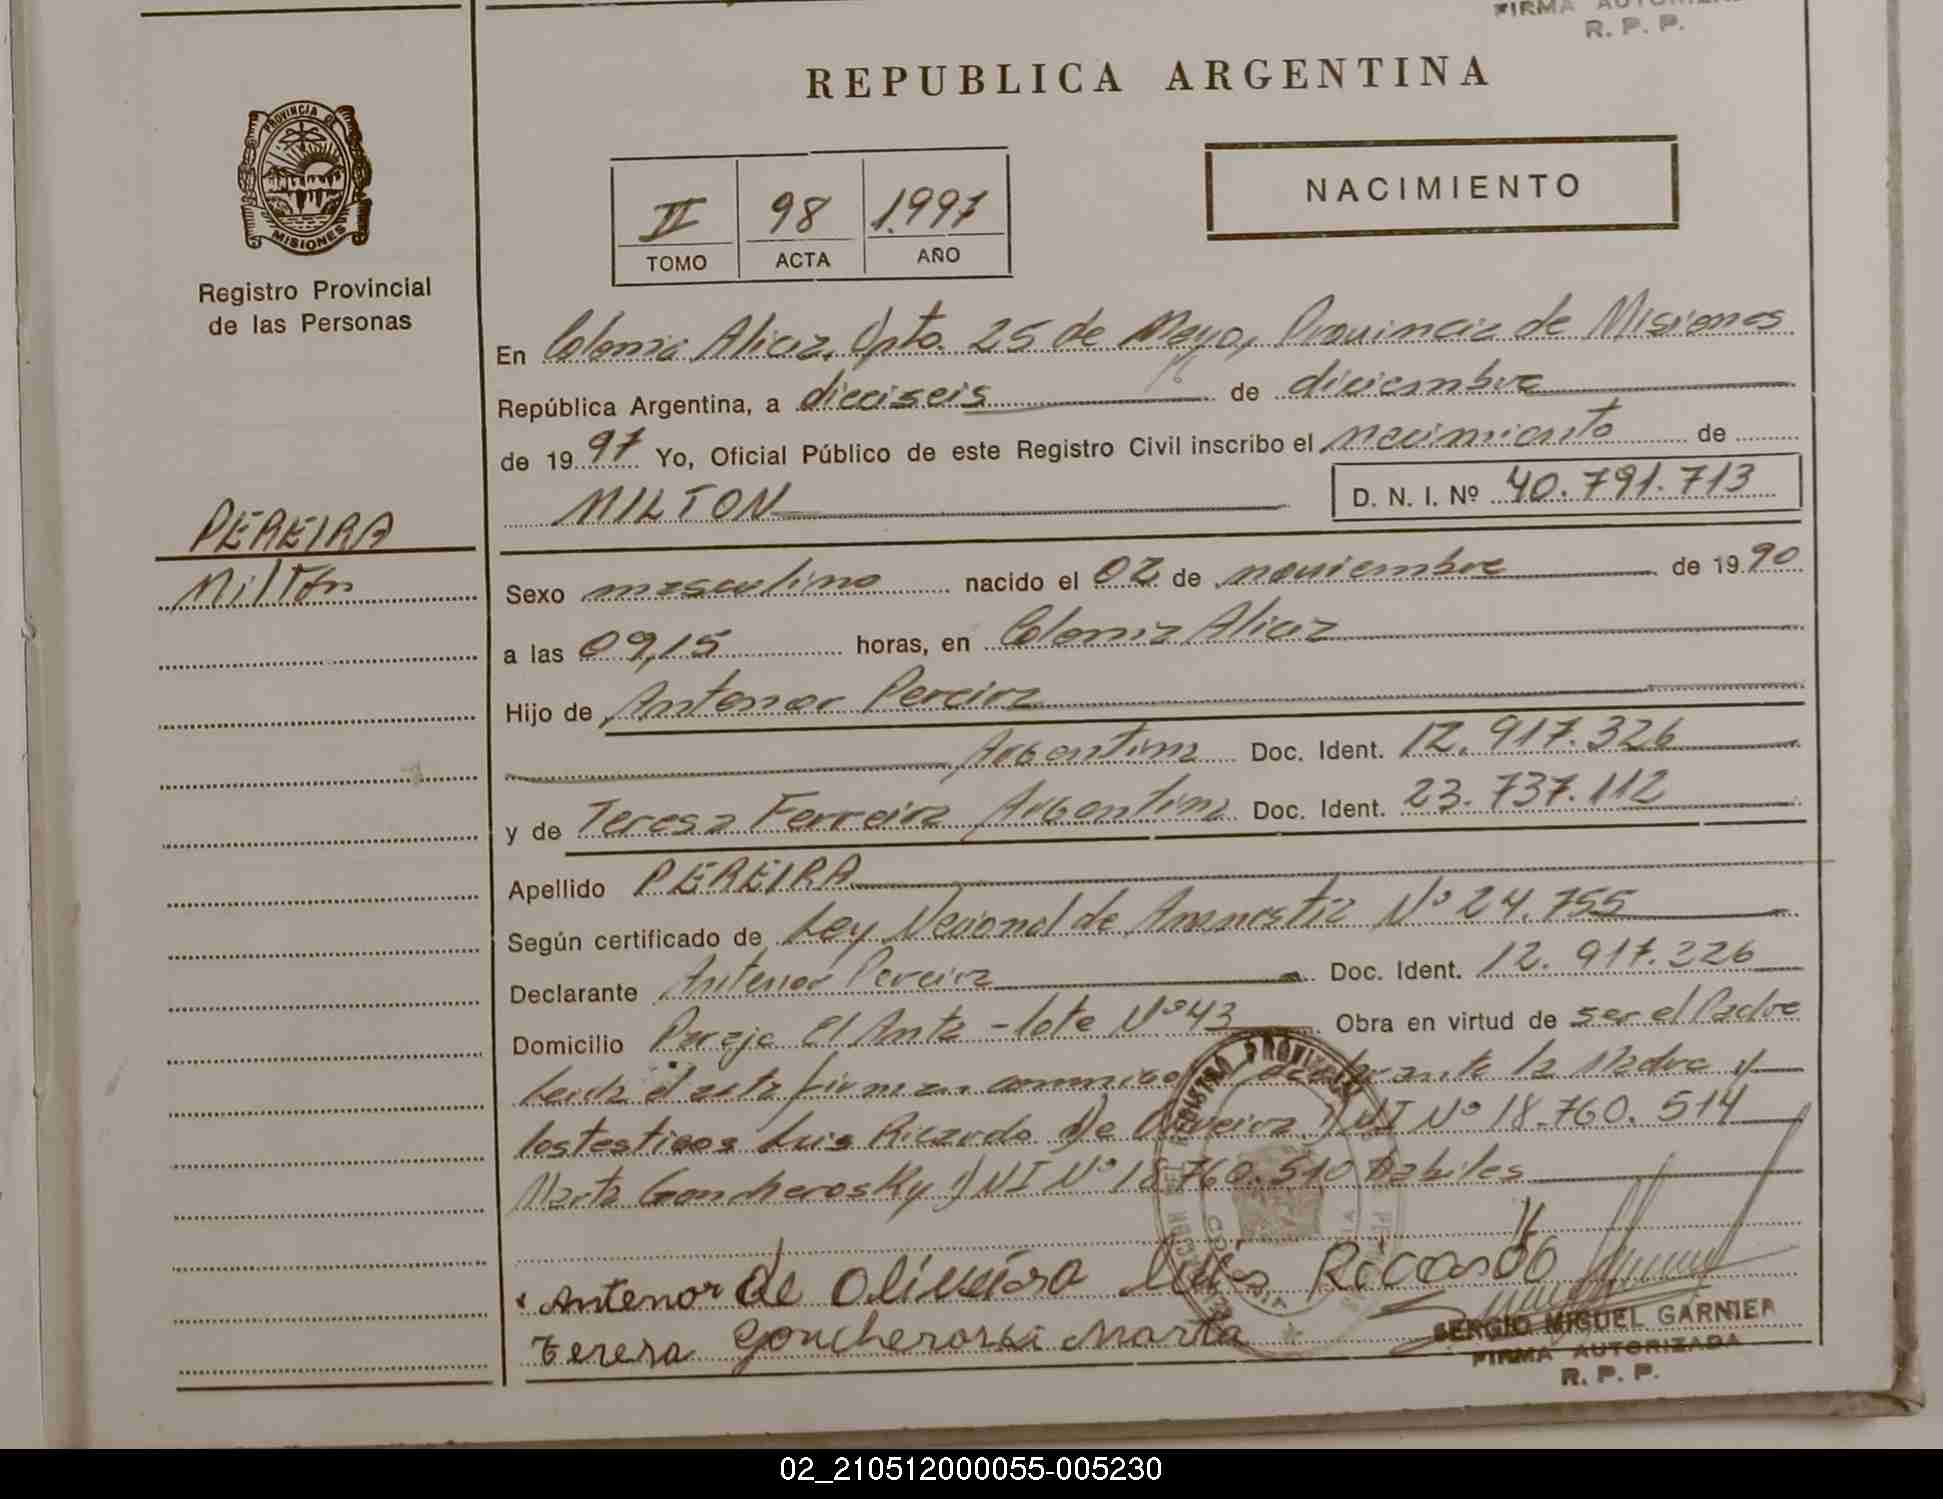 FIRMA AUTORIZADA
R. P. P.
REPUBLICA ARGENTINA
PROVINCIA DE
MISIONES
Registro Provincial
de las Personas
II 98 1.997
TOMO ACTA AÑO
NACIMIENTO
En Colonia Alicia, Dpto. 25 de Mayo, Provincia de Misiones
República Argentina, a dieciseis de diciembre
de 1997 Yo, Oficial Público de este Registro Civil inscribo el nacimiento de
MILTON D. N. I. Nº 40.791.713
PEREIRA
Milton
Sexo masculino nacido el 02 de noviembre de 1990
a las 09,15 horas, en Colonia Alicia
Hijo de Antenor Pereira
Argentina Doc. Ident. 12.917.326
y de Teresa Ferreira Argentina Doc. Ident. 23.737.112
Apellido PEREIRA
Según certificado de Ley Nacional de Amnestia Nº 24.755
Declarante Antenor Pereira Doc. Ident. 12.917.326
Domicilio Paraje El Anta - lote Nº 43 Obra en virtud de ser el Padre
Leida el acta firman conmigo el declarante la Madre y
los testigos Luis Ricardo De Oliveira DNI Nº 18.760.514
Marta Goncherosky DNI Nº 18.760.510 habiles
Antenor de Oliveira Luis Ricardo
Teresa Goncheroski Marta
SERGIO MIGUEL GARNIER
FIRMA AUTORIZADA
R. P. P.
02_210512000055-005230